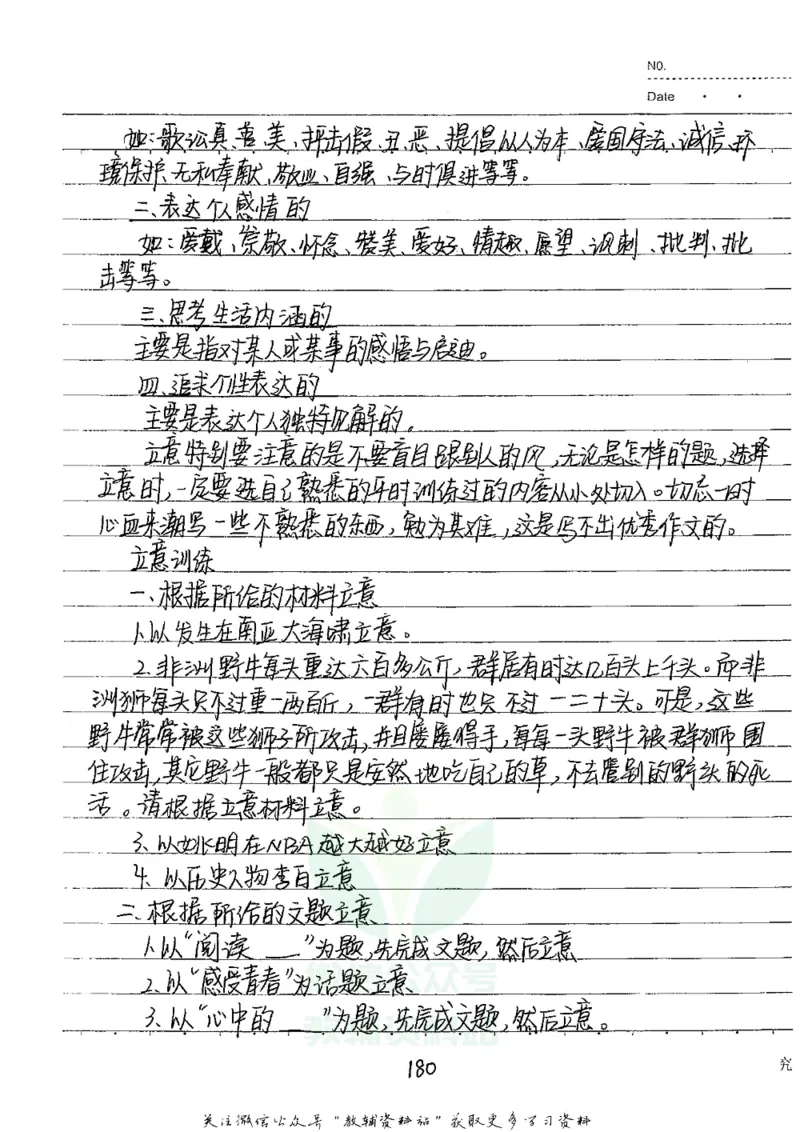 NO.
Date · ·
如:歌讼真、善、美、抨击假、丑、恶、提倡以人为本、爱国守法、诚信、环
境保护、无私奉献、敬业、自强、与时俱进等等。
二、表达个人感情的
如:爱戴、崇敬、怀念、赞美、爱好、情趣、愿望、讽刺、批判、批
击等等。
三、思考生活内涵的
主要是指对某人或某事的感悟与启迪。
四、追求个性表达的
主要是表达个人独特见解的。
立意特别要注意的是不要盲目跟别人的风,无论是怎样的题,选择
立意时,一定要选自己熟悉的平时训练过的内容从小处切入。切忌一时
心血来潮写一些不熟悉的东西,勉为其难,这是写不出优秀作文的。
立意训练
一、根据所给的材料立意
1.以发生在南亚大海啸立意。
2.非洲野牛每头重达六百多公斤,群居有时达几百头上千头。而非
洲狮每头只不过重一两百斤,一群有时也只不过一二十头。可是,这些
野牛常常被这些狮子所攻击,并且屡屡得手,每每一头野牛被群狮围
住攻击,其它野牛一般都只是安然地吃自己的草,不去管别的野头的死
活。请根据立意材料立意。
3.以姚明在NBA越大越好立意
4.以历史人物李白立意
二、根据所给的文题立意
1.以“阅读___”为题,先完成文题,然后立意
2.以“感受青春”为话题立意
3.以“心中的___”为题,先完成文题,然后立意。
180
究
关注微信公众号“教辅资料站”获取更多学习资料